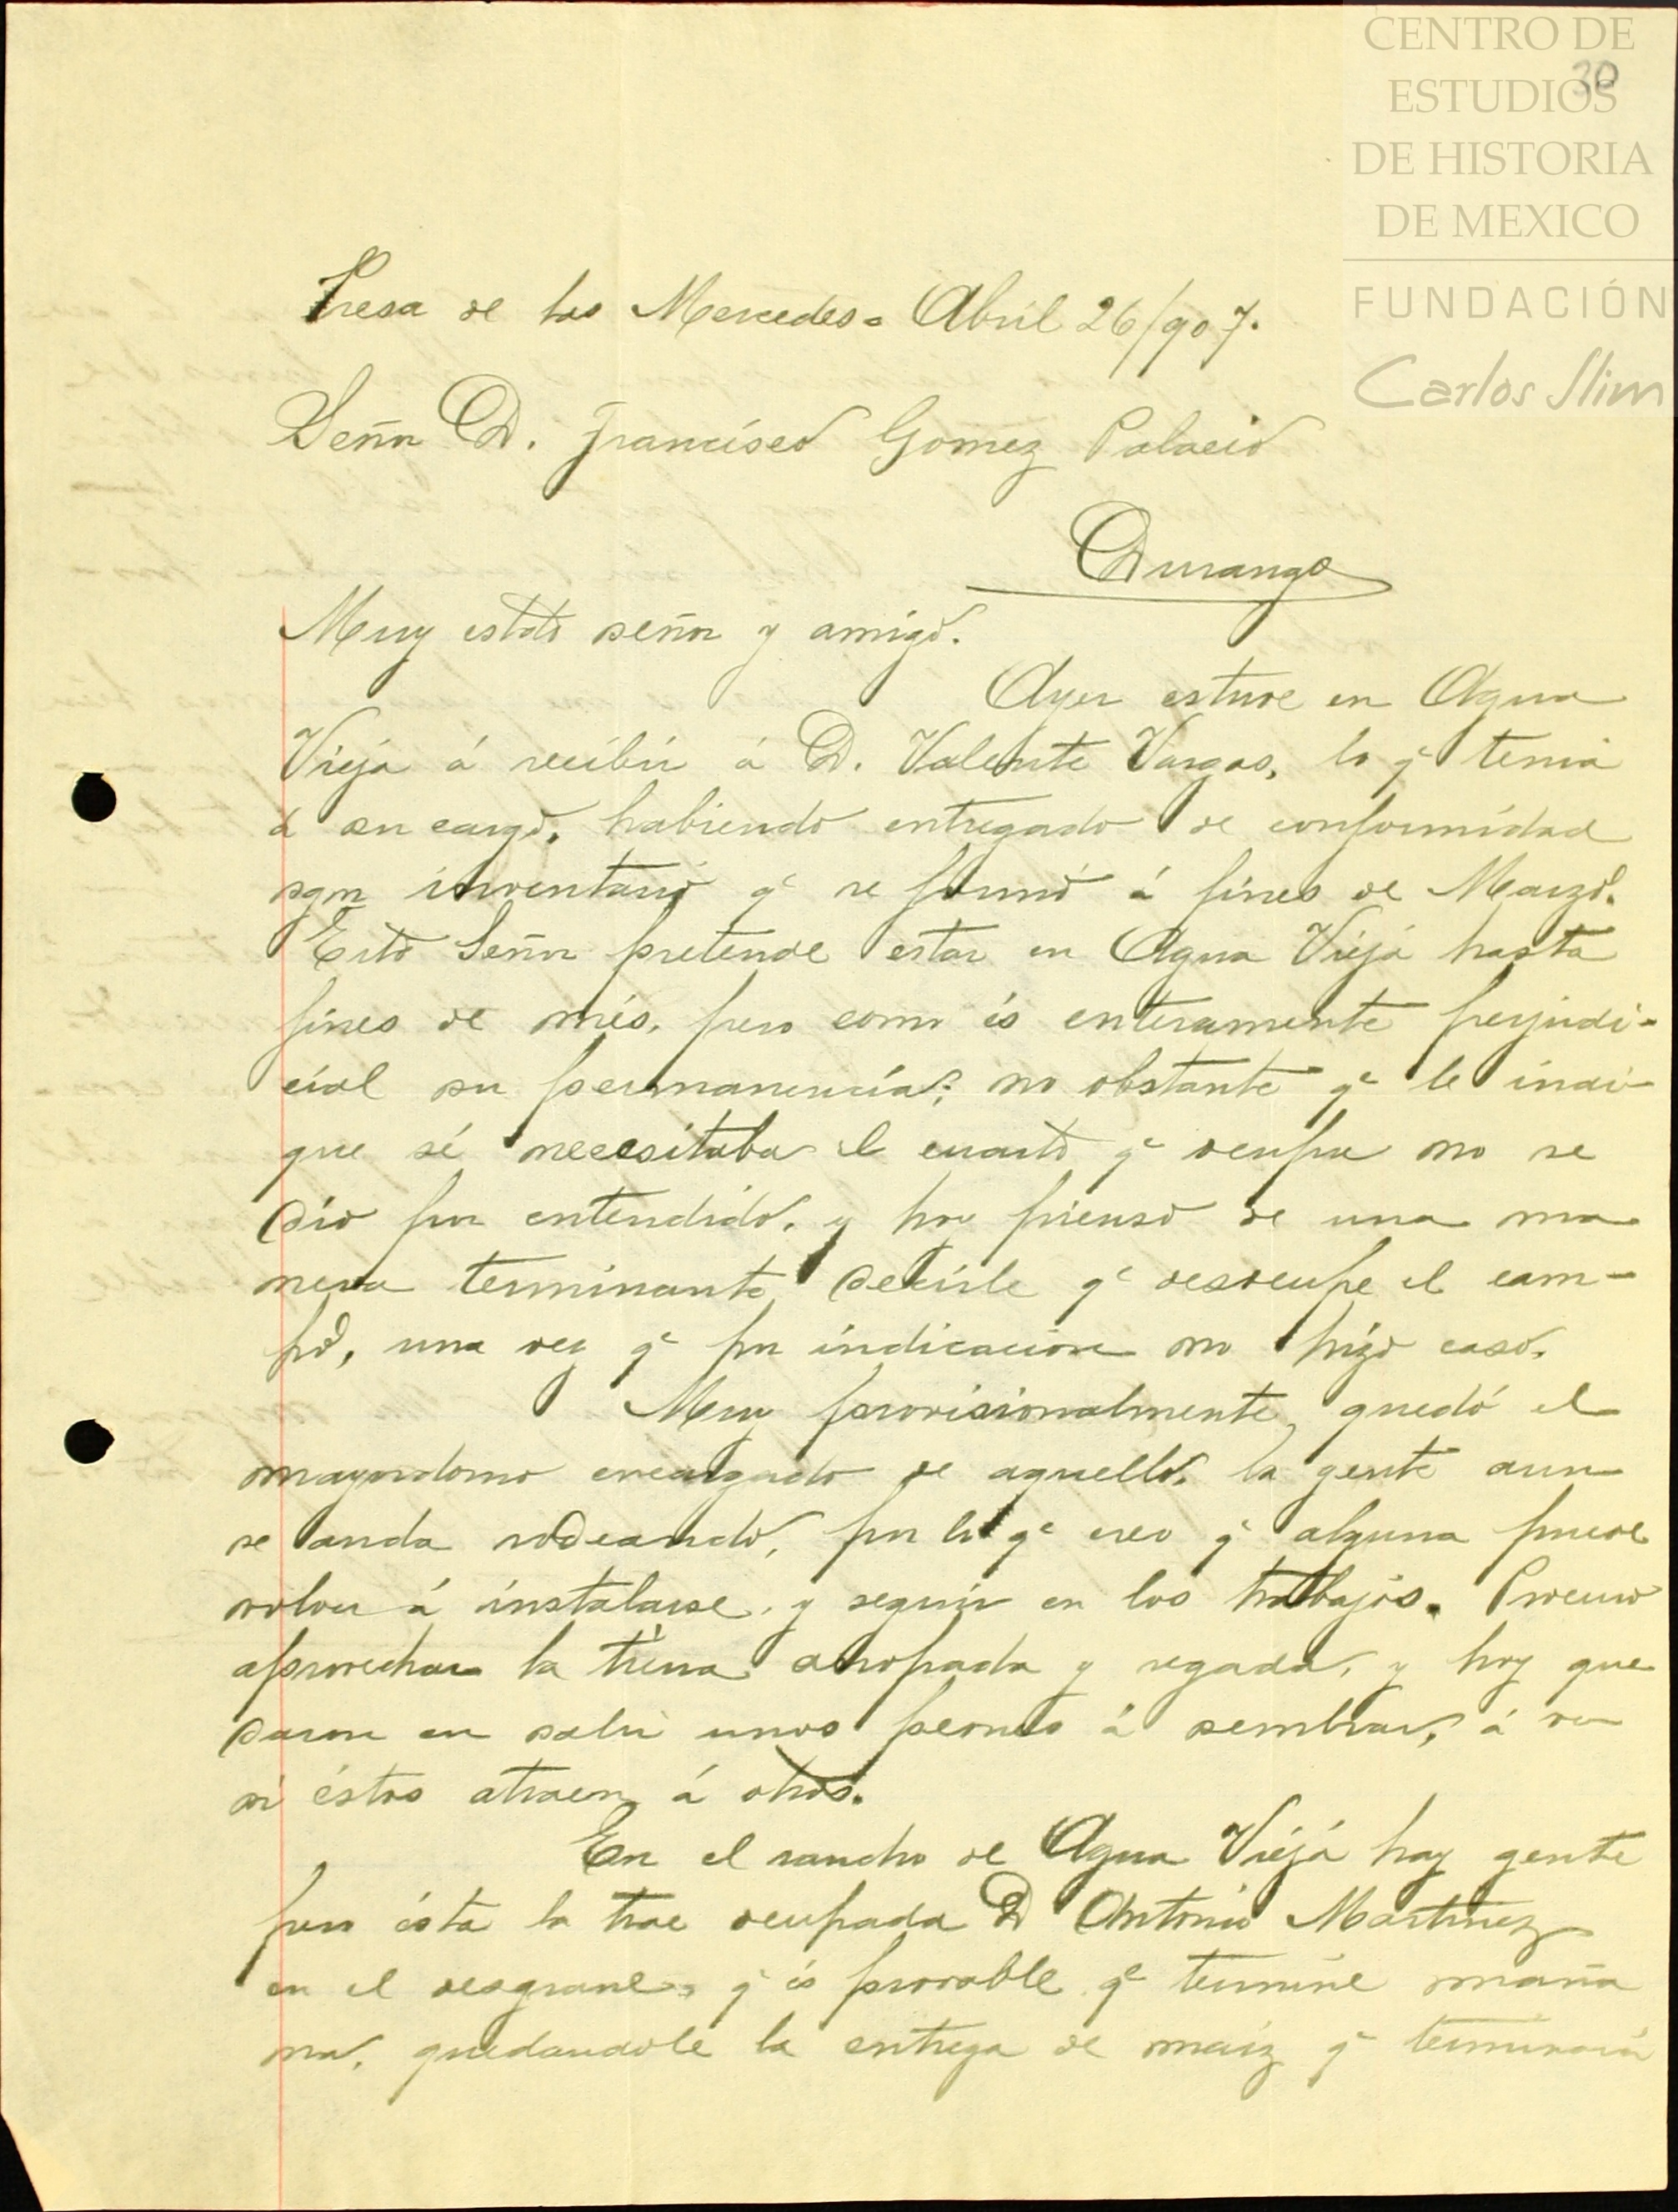 CENTRO DE
ESTUDIOS
DE HISTORIA
DE MEXICO
FUNDACIÓN
Carlos Slim
30
Presa de las Mercedes = Abril 26/907.
Señor D. Francisco Gomez Palacio
Durango
Muy estdo señor y amigo.
Ayer estuve en Agua
Vieja á recibir á D. Valente Vargas, lo qe tenia
á su cargo, habiendo entregado de conformidad
sgn inventario qe se formó á fines de Marzo.
Este Señor pretende estar en Agua Vieja hasta
fines de més, pero como és enteramente perjudi-
cial su permanencia; no obstante qe le indi-
que sé necesitaba el cuarto qe ocupa no se
dio por entendido, y hoy pienso de una ma-
nera terminante decirle qe desocupe el cam-
po, una vez qe por indicacion no hizo caso.
Muy provisionalmente, quedó el
mayordomo encargado de aquello, la gente aun
se anda rodeando, por lo qe creo qe alguna puede
volver á instalarse, y seguir en los trabajos. Procuro
aprovechar la tierra arropada y regada, y hoy que
daron en salir unos peones á sembrar, á ver
si éstos atraen á otros.
En el rancho de Agua Vieja hay gente
pero ésta la trae ocupada D Antonio Martinez
en el desgrane, qe és provable qe termine maña
na, quedandole la entrega de maiz qe terminará